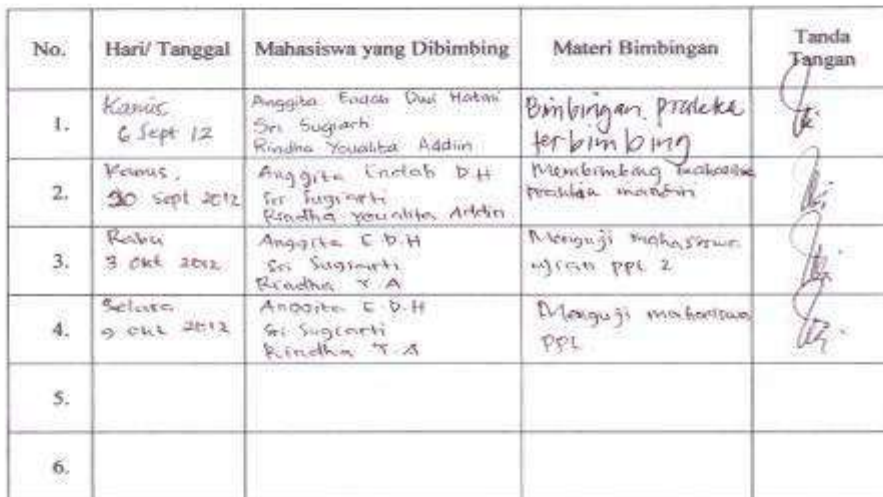 No. Hari/ Tanggal Mahasiswa yang Dibimbing Materi Bimbingan Tanda
Tangan
1. Kamis, 6 Sept 12
Anggita Endah Dwi Hatmi
Sri Sugiarti
Rindha Youalita Addiin
Bimbingan Praktek
terbimbing
2. Kamis,
20 Sept 2012
Anggita Endah D.H
Sri Sugiarti
Rindha Youalita Addin
Membimbing mahasiswa
mandiri
3. Rabu
3 Okt 2012
Anggita E D.H
Sri Sugiarti
Rindha Y.A
Menguji mahasiswa
ujian PPL 2
4. Selasa
9 Okt 2012
Anggita E D.H
Sri Sugiarti
Rindha Y.A
Menguji mahasiswa
PPL
5.
6.